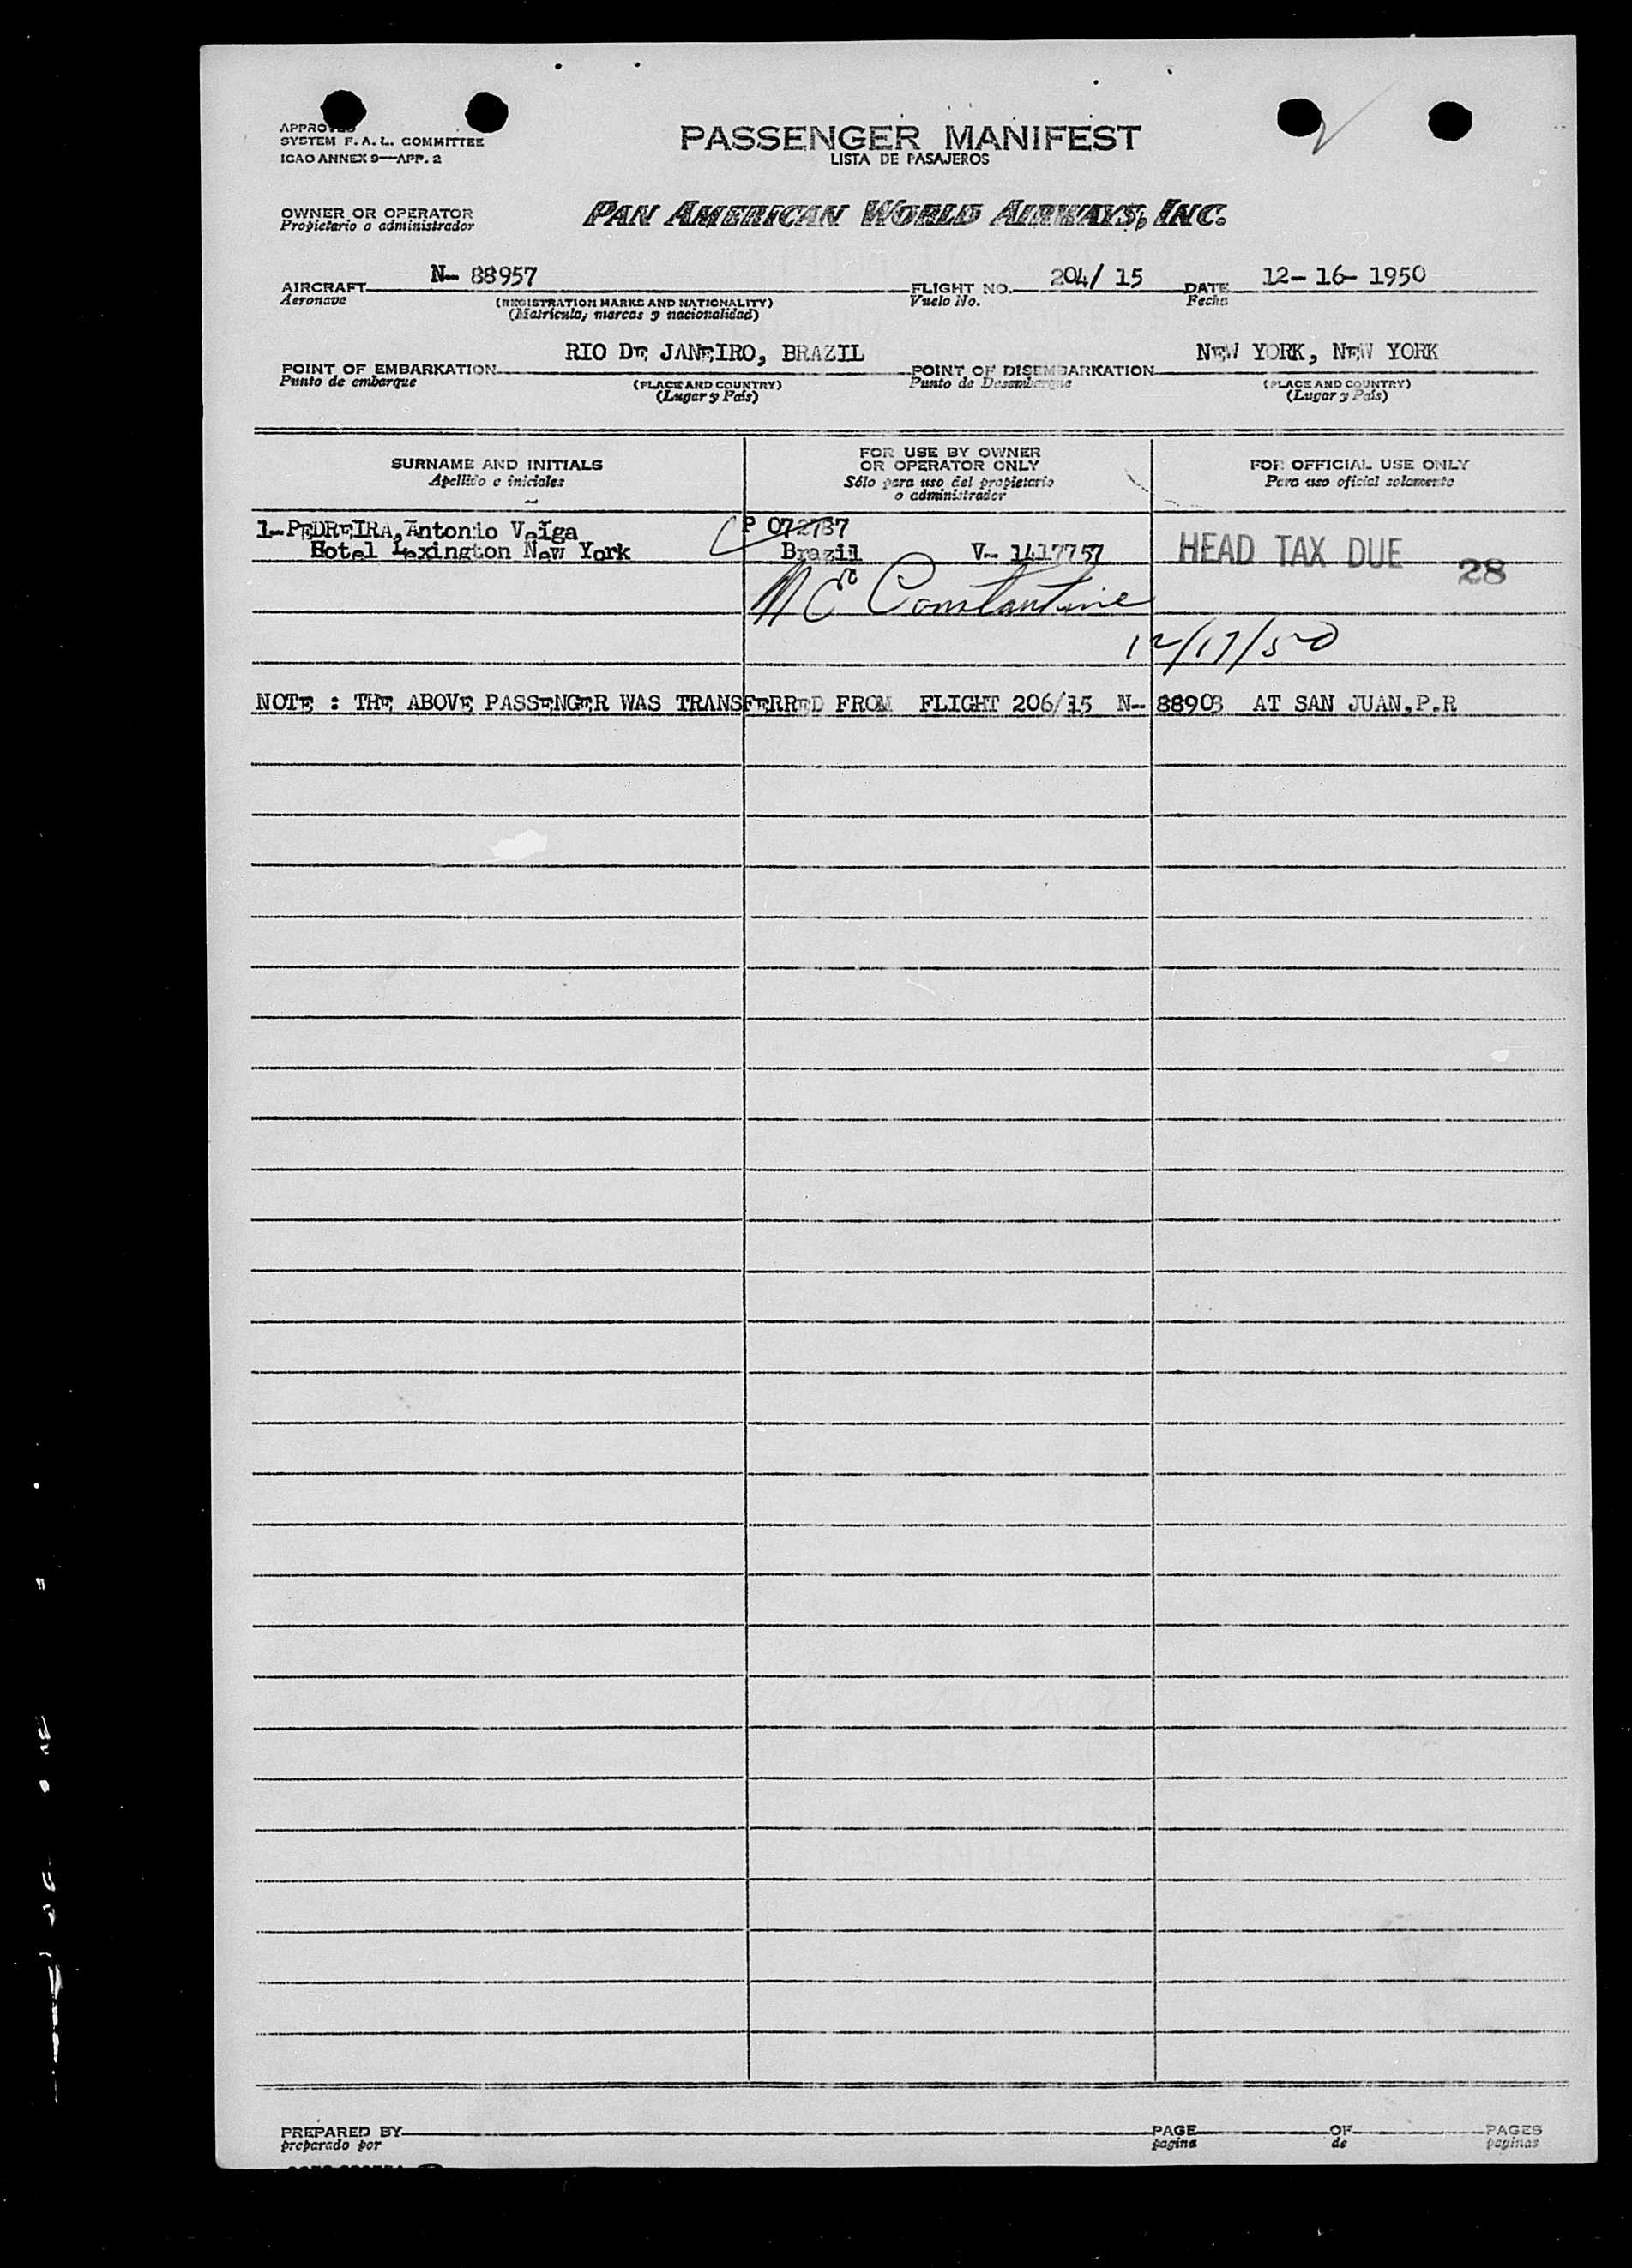 APPROVED
SYSTEM F. A. L. COMMITTEE
ICAO ANNEX 9—APP. 2
PASSENGER MANIFEST
LISTA DE PASAJEROS
OWNER OR OPERATOR
Propietario o administrador
PAN AMERICAN WORLD AIRWAYS, INC.
AIRCRAFT N- 88957 FLIGHT NO. 204/ 15 DATE 12- 16- 1950
Aeronave (REGISTRATION MARKS AND NATIONALITY) Vuelo No. Fecha
(Matrícula, marcas y nacionalidad)
POINT OF EMBARKATION RIO DE JANEIRO, BRAZIL POINT OF DISEMBARKATION NEW YORK, NEW YORK
Punto de embarque (PLACE AND COUNTRY) Punto de Desembarque (PLACE AND COUNTRY)
(Lugar y País) (Lugar y País)
SURNAME AND INITIALS
Apellido e iniciales
FOR USE BY OWNER
OR OPERATOR ONLY
Sólo para uso del propietario
o administrador
FOR OFFICIAL USE ONLY
Para uso oficial solamente
1-PEDREIRA,Antonio Veiga P 072787
Hotel Lexington New York Brazil V- 1417757 HEAD TAX DUE 28
N E Constantine
12/17/50
NOTE : THE ABOVE PASSENGER WAS TRANSFERRED FROM FLIGHT 206/15 N- 88903 AT SAN JUAN,P.R
PREPARED BY PAGE OF PAGES
preparado por pagina de paginas